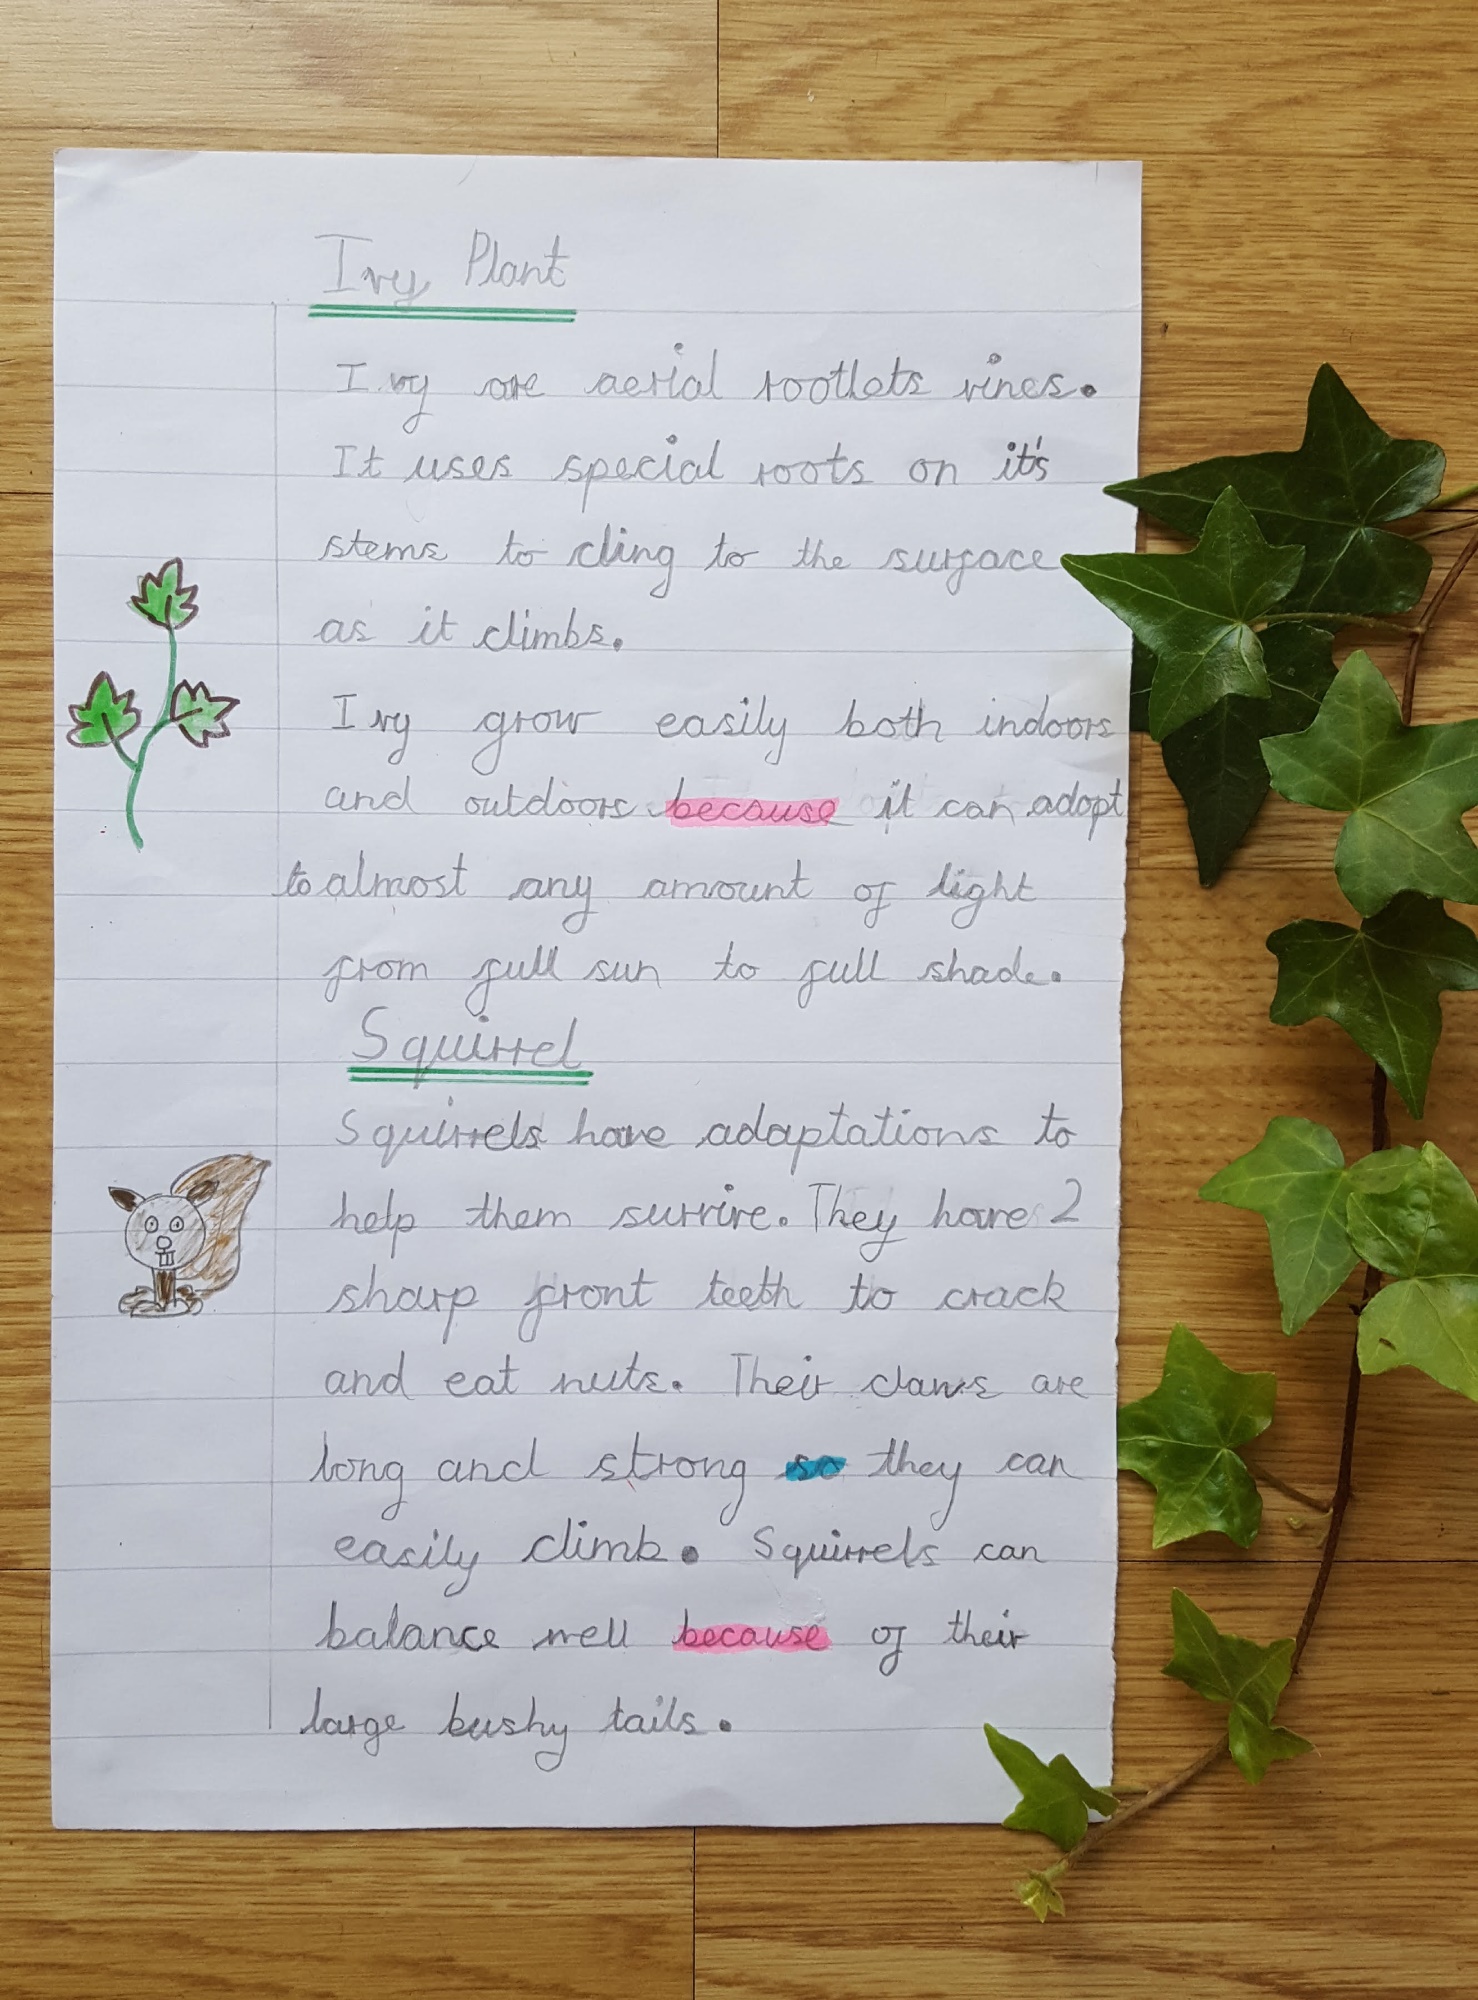 Ivy Plant
Ivy are aerial rootlets vines.
It uses special roots on it's
stems to cling to the surface
as it climbs.
Ivy grow easily both indoors
and outdoors because it can adapt
to almost any amount of light
from full sun to full shade.
Squirrel
Squirrels have adaptations to
help them survive. They have 2
sharp front teeth to crack
and eat nuts. Their claws are
long and strong so they can
easily climb. Squirrels can
balance well because of their
large bushy tails.